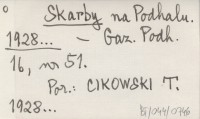 Skarby na Podhalu.
1928... — Gaz. Podh.
16, nr 51.
Por.: CIKOWSKI T.
1928...
B/044/0746